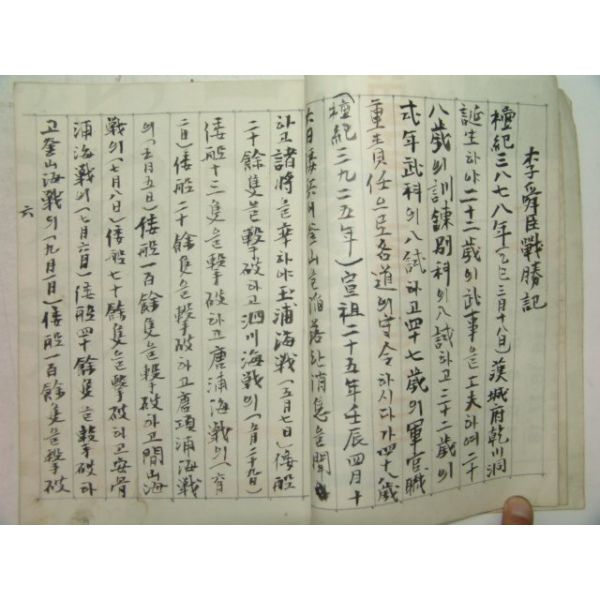 李舜臣戰勝記
檀紀三八七八年(乙巳三月十八日)漢城府乾川洞
誕生하야二十二歲의武事을工夫하여二十
八歲의訓鍊別科의入試하고三十二歲의
式年武科의入試하고四十七歲의軍官職
重責任으로各道의守令하시다가四十八歲
(檀紀三九二五年)宣祖二十五年壬辰四月十
六日倭兵이釜山을陷落한消息을聞
하고諸將을率하야玉浦海戰(五月七日)倭船
二十餘隻을擊破하고泗川海戰의(五月二十九日)
倭船十三隻을擊破하고唐浦海戰의(六月
二日)倭船二十餘隻을擊破하고唐項浦海戰
의(六月五日)倭船一百餘隻을擊破하고閒山海
戰의(七月八日)倭船七十餘隻을擊破하고安骨
浦海戰의(七月六日)倭船四十餘隻을擊破하
고釜山海戰의(九月一日)倭船一百餘隻을擊破
六